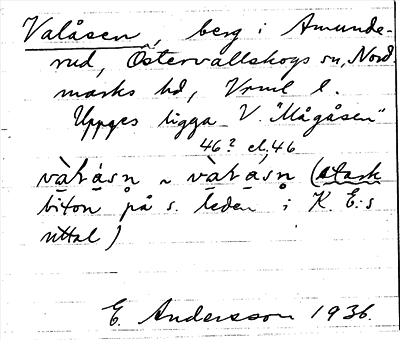 Valåsen, berg i Amunde-
rud, Östervallskogs sn, Nord
marks hd, Vrml l.
Uppges ligga V. "Mågåsen"
46? el. 46
vàlåsn ~ vàlåsn (stark
biton på s. leden i K. E:s
uttal)
E. Andersson 1936.